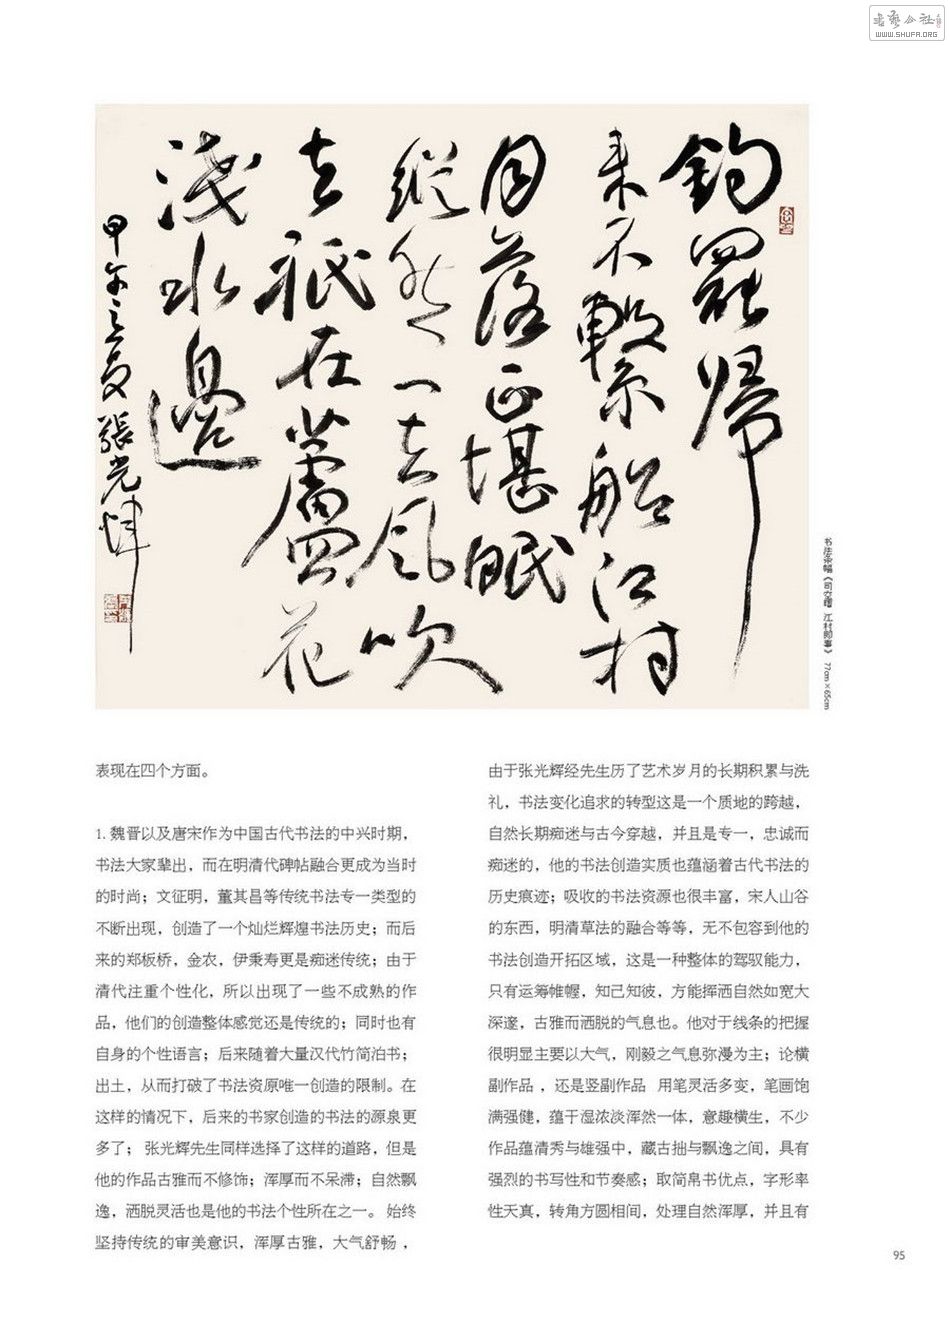 書藝公社
WWW.SHUFA.ORG
釣罷歸
來不繫船江村
月落正堪眠
縱然一去風吹
去祇在蘆花
淺水邊
甲午之夏 張光煇
书法条幅《司空曙 江村即事》 77cm×65cm
表现在四个方面。
1. 魏晋以及唐宋作为中国古代书法的中兴时期，
书法大家辈出，而在明清代碑帖融合更成为当时
的时尚；文征明，董其昌等传统书法专一类型的
不断出现，创造了一个灿烂辉煌书法历史；而后
来的郑板桥，金农，伊秉寿更是痴迷传统；由于
清代注重个性化，所以出现了一些不成熟的作
品，他们的创造整体感觉还是传统的；同时也有
自身的个性语言；后来随着大量汉代竹简泊书；
出土，从而打破了书法资原唯一创造的限制。在
这样的情况下，后来的书家创造的书法的源泉更
多了； 张光辉先生同样选择了这样的道路，但是
他的作品古雅而不修饰；浑厚而不呆滞；自然飘
逸，洒脱灵活也是他的书法个性所在之一。 始终
坚持传统的审美意识，浑厚古雅，大气舒畅 ，
由于张光辉经先生历了艺术岁月的长期积累与洗
礼，书法变化追求的转型这是一个质地的跨越，
自然长期痴迷与古今穿越，并且是专一，忠诚而
痴迷的，他的书法创造实质也蕴涵着古代书法的
历史痕迹；吸收的书法资源也很丰富，宋人山谷
的东西，明清草法的融合等等，无不包容到他的
书法创造开拓区域，这是一种整体的驾驭能力，
只有运筹帷幄，知己知彼，方能挥洒自然如宽大
深邃，古雅而洒脱的气息也。他对于线条的把握
很明显主要以大气，刚毅之气息弥漫为主；论横
副作品 ，还是竖副作品 用笔灵活多变，笔画饱
满强健，蕴于湿浓淡浑然一体，意趣横生，不少
作品蕴清秀与雄强中，藏古拙与飘逸之间，具有
强烈的书写性和节奏感；取简帛书优点，字形率
性天真，转角方圆相间，处理自然浑厚，并且有
95